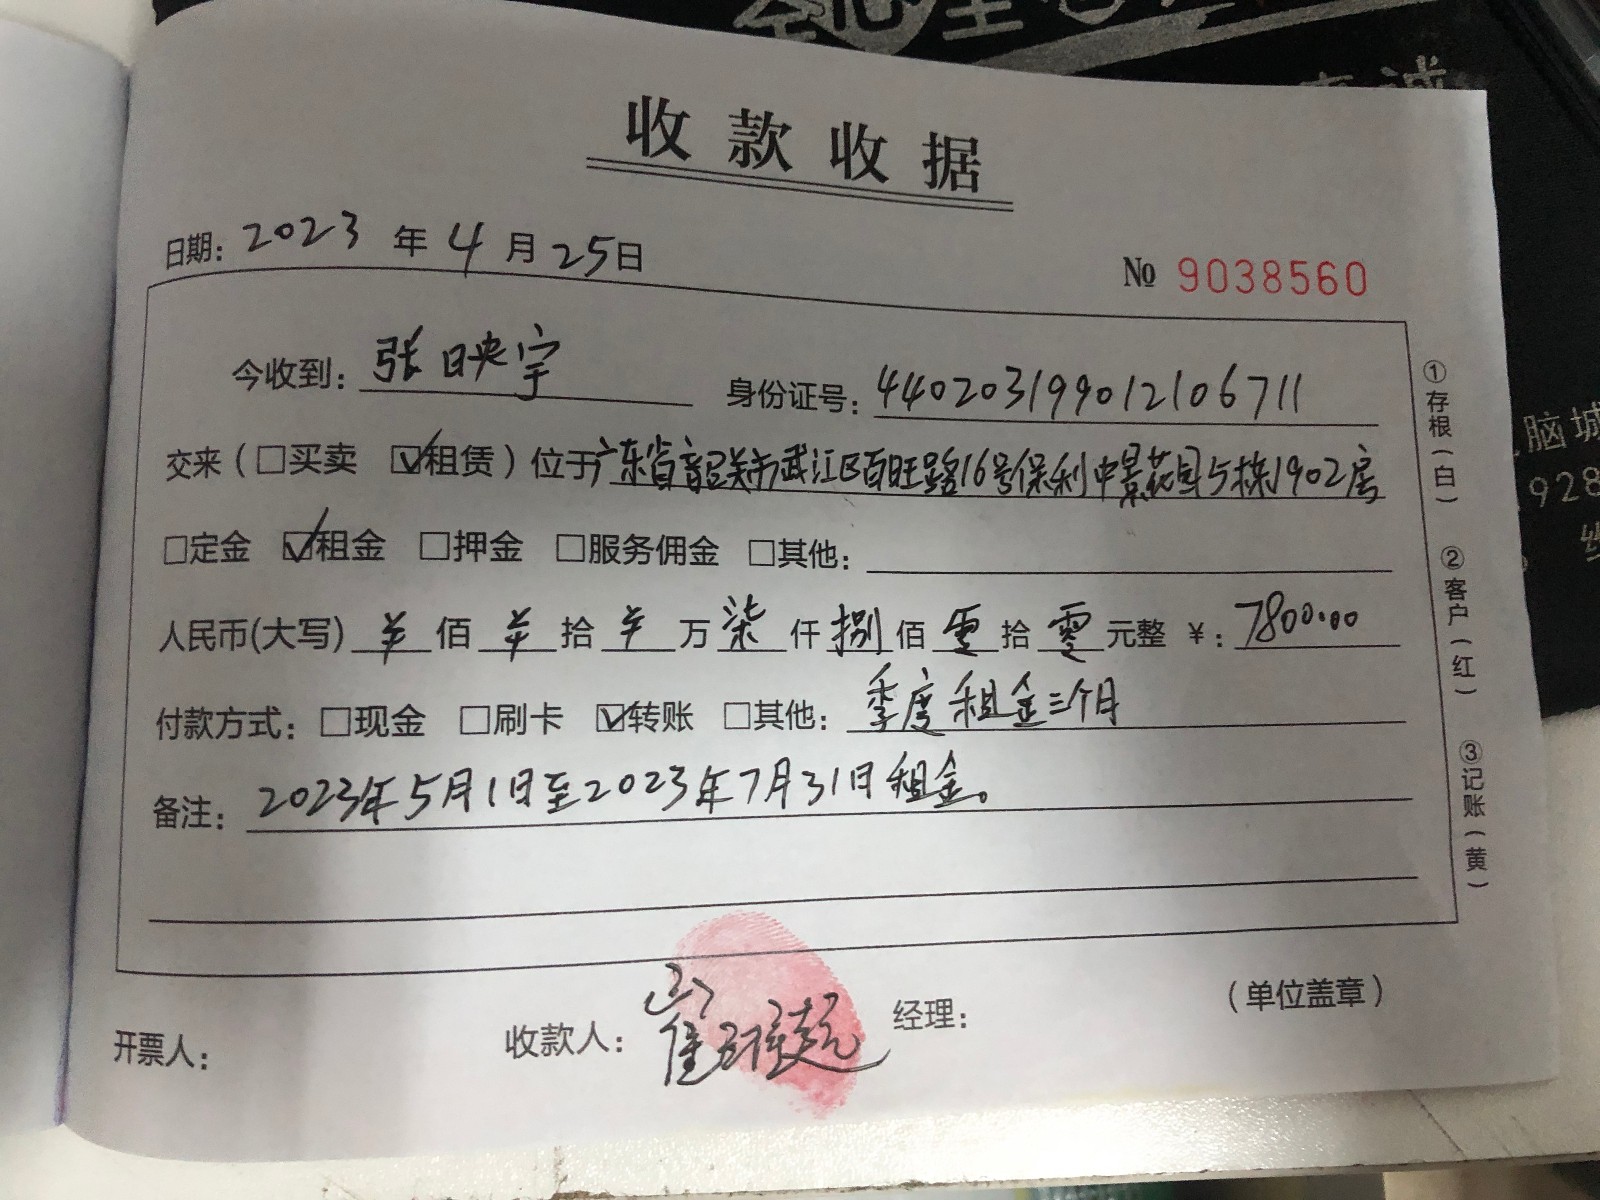 收款收据
日期: 2023 年 4 月 25 日
№ 9038560
今收到: 张映宇 身份证号: 440203199012106711
交来（☐买卖 ☑租赁）位于广东省韶关市武江区百旺路16号保利中景花园5栋1902房
☐定金 ☑租金 ☐押金 ☐服务佣金 ☐其他:
人民币(大写) ¥ 佰 ¥ 拾 ¥ 万 柒 仟 捌 佰 零 拾 零 元整 ¥: 7800.00
付款方式: ☐现金 ☐刷卡 ☑转账 ☐其他: 季度租金三个月
备注: 2023年5月1日至2023年7月31日租金。
开票人: 收款人: 崔 经理: （单位盖章）
①存根（白）
②客户（红）
③记账（黄）
脑城
928
诚